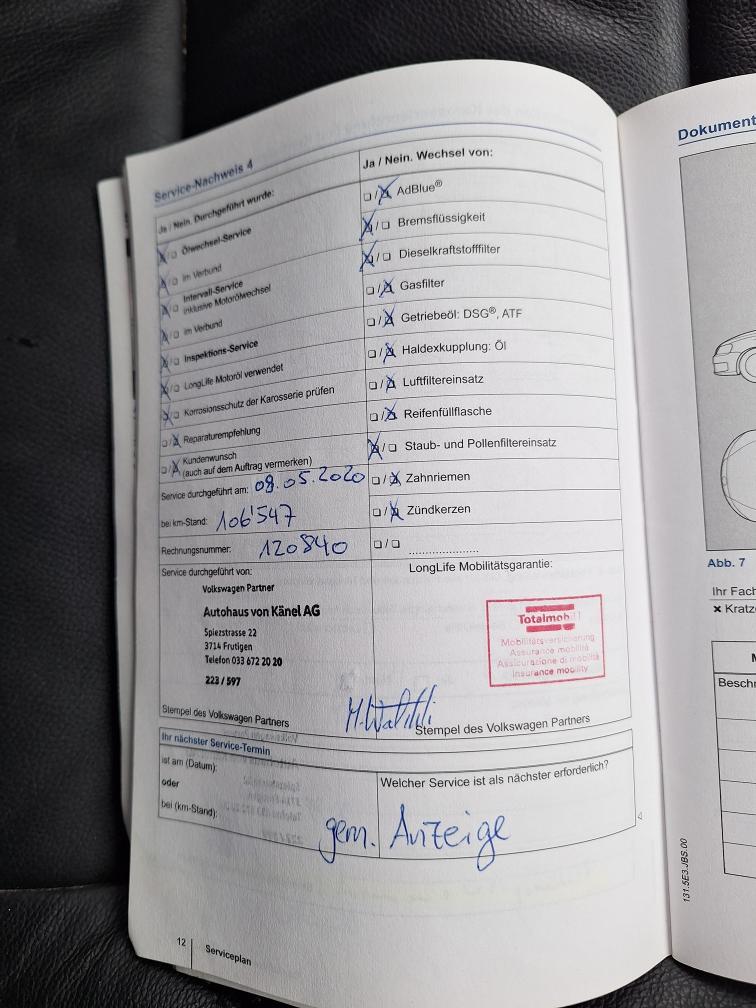 Service-Nachweis 4
Ja / Nein. Durchgeführt wurde:
☒/☐ Ölwechsel-Service
☒/☐ im Verbund
☒/☐ Intervall-Service
inklusive Motorölwechsel
☒/☐ im Verbund
☒/☐ Inspektions-Service
☒/☐ LongLife Motoröl verwendet
☒/☐ Korrosionsschutz der Karosserie prüfen
☐/☒ Reparaturempfehlung
☐/☒ Kundenwunsch
(auch auf dem Auftrag vermerken)
Service durchgeführt am: 08.05.2020
bei km-Stand: 106'547
Rechnungsnummer: 120840
Ja / Nein. Wechsel von:
☐/☒ AdBlue®
☒/☐ Bremsflüssigkeit
☒/☐ Dieselkraftstofffilter
☐/☒ Gasfilter
☐/☒ Getriebeöl: DSG®, ATF
☐/☒ Haldexkupplung: Öl
☐/☒ Luftfiltereinsatz
☐/☒ Reifenfüllflasche
☒/☐ Staub- und Pollenfiltereinsatz
☐/☒ Zahnriemen
☐/☒ Zündkerzen
☐/☐ .....................
Service durchgeführt von:
Volkswagen Partner
Autohaus von Känel AG
Spiezstrasse 22
3714 Frutigen
Telefon 033 672 20 20
223 / 597
Stempel des Volkswagen Partners
LongLife Mobilitätsgarantie:
Totalmobil!
Mobilitätsversicherung
Assurance mobilité
Assicurazione di mobilità
Insurance mobility
Stempel des Volkswagen Partners
Ihr nächster Service-Termin
ist am (Datum):
oder
bei (km-Stand):
Welcher Service ist als nächster erforderlich?
gem. Anzeige
12
Serviceplan
131.5E3.JBS.00
Dokument
Abb. 7
Ihr Fach
× Kratze
Beschr